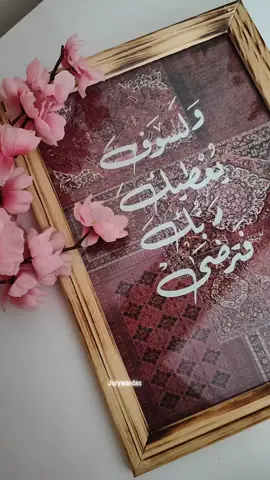 وَلَسَوْفَ
يُعْطِيكَ
رَبُّكَ
فَتَرْضَىٰ
Jorywardas